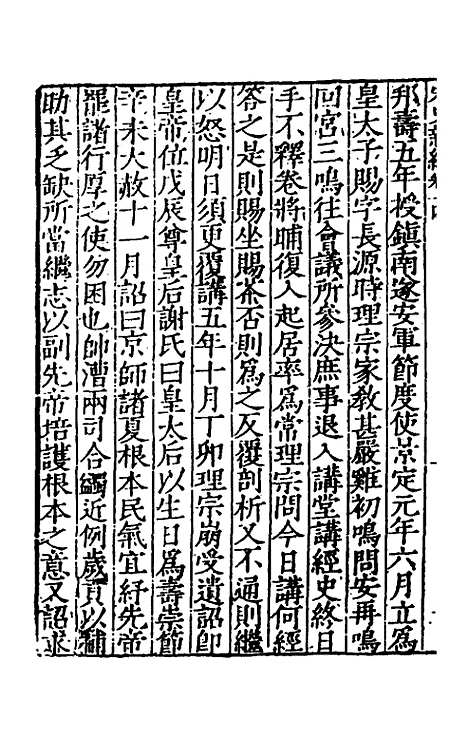 邦壽五年授鎮南遂安軍節度使景定元年六月立爲
皇太子賜字長源時理宗家敎甚嚴雞初鳴問安再鳴
回宮三鳴往會議所參決庶事退入講堂講經史終日
手不釋卷將晡復入起居率爲常理宗問今日講何經
答之是則賜坐賜茶否則爲之反覆剖析又不通則繼
以怒明日須更覆講五年十月丁卯理宗崩受遺詔即
皇帝位戊辰尊皇后謝氏曰皇太后以生日爲壽崇節
辛未大赦十一月詔曰京師諸夏根本民氣宜紓先帝
罷諸行厚之使勿困也帥漕兩司合蠲近例歲賁以補
助其乏缺所當繼志以副先帝培護根本之意又詔求